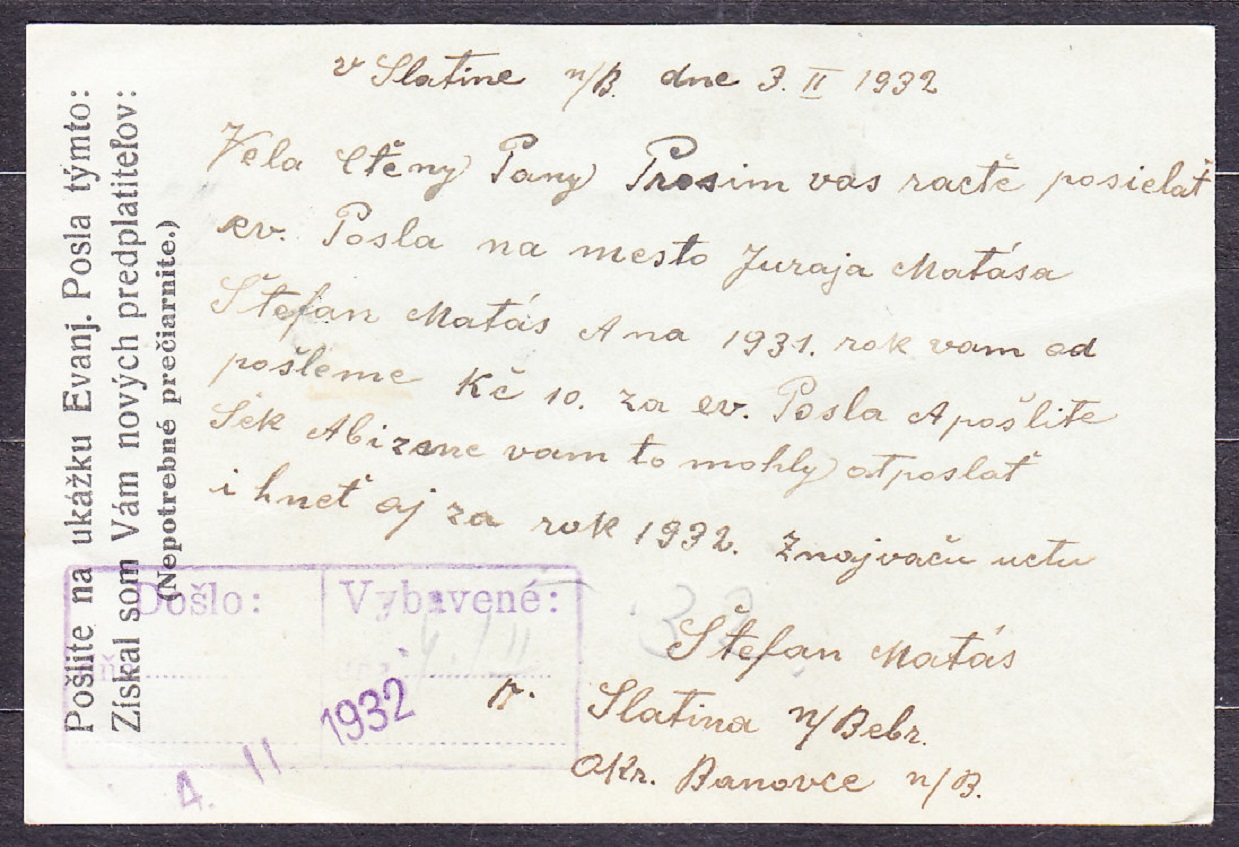 v Slatine n/B. dne 3. II 1932
Vela Ctěny Pany Prosim vas račtě posielať
ev. Posla na mesto Juraja Matása
Štefan Matás A na 1931. rok vam od
pošleme Kč 10. za ev. Posla A pošlite
Šek Abizme vam to mohly otposlať
i hneť aj za rok 1932. Znajvaču uctu
Štefan Matás
n. Slatina n/Bebr.
Okr. Banovce n/B.
Pošlite na ukážku Evanj. Posla týmto:
Získal som Vám nových predplatiteľov:
(Nepotrebné prečiarnite.)
Došlo:
Vybavené:
4. II 1932